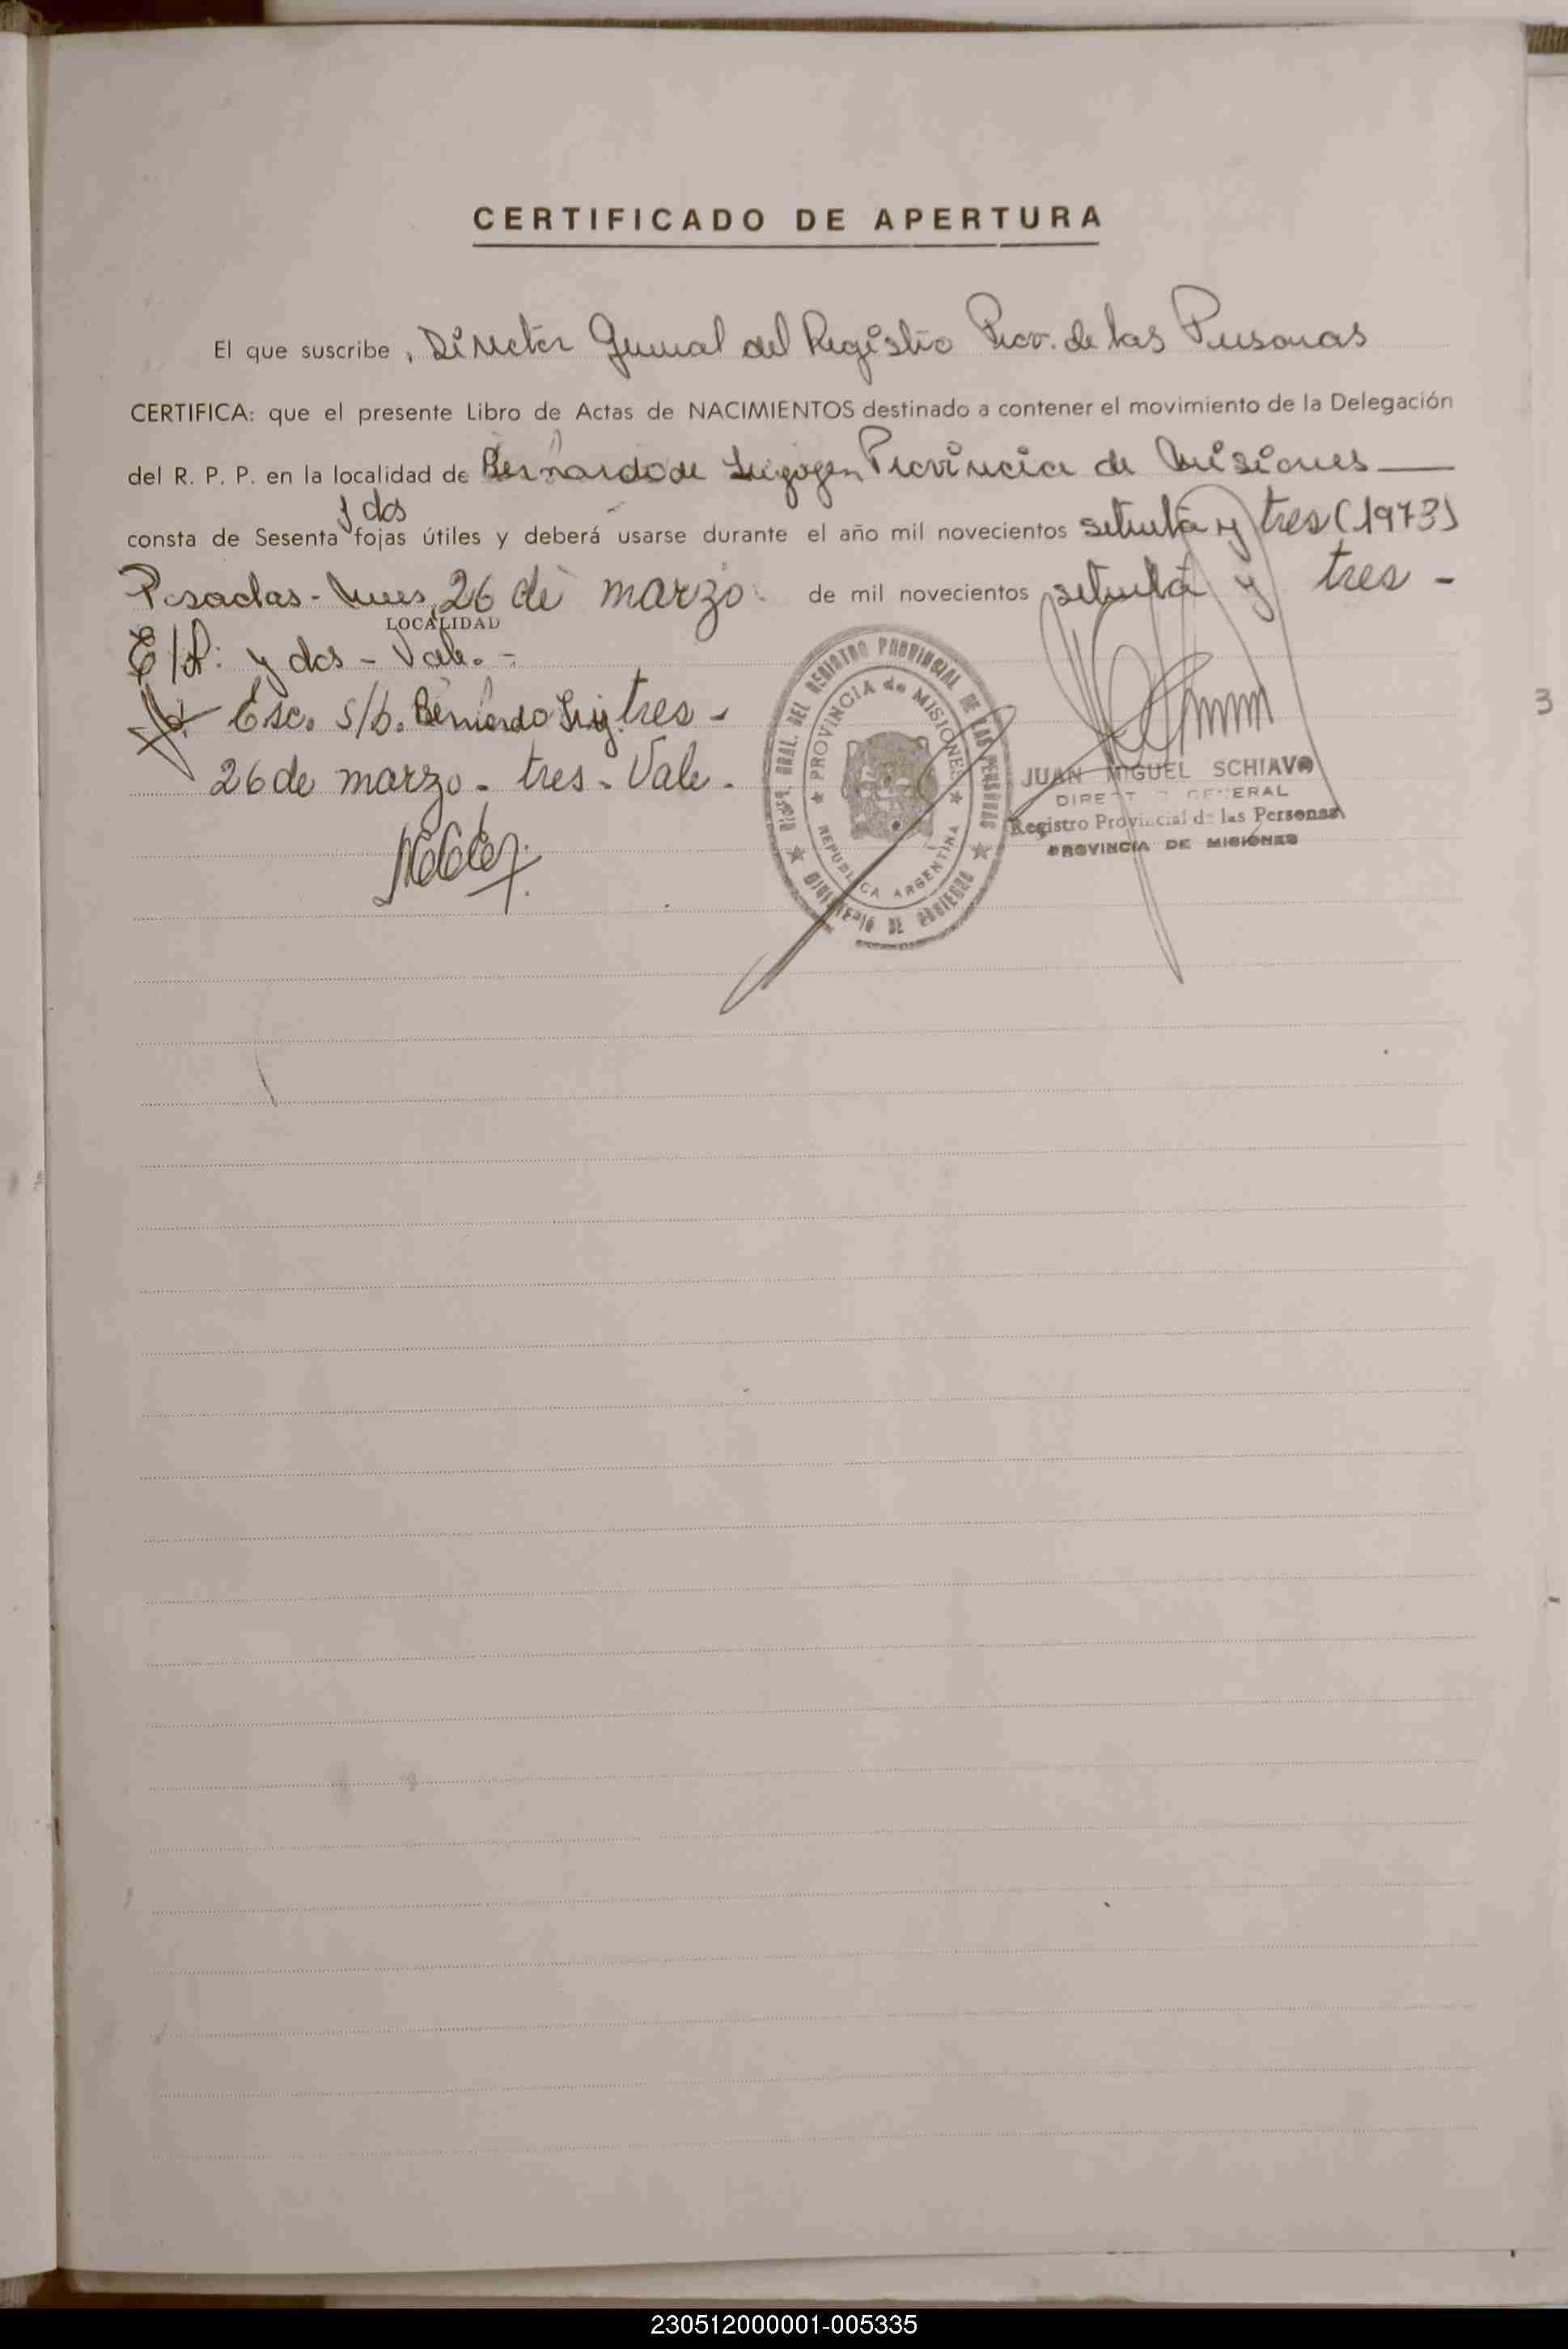 CERTIFICADO DE APERTURA
El que suscribe, Director General del Registro Prov. de las Personas
CERTIFICA: que el presente Libro de Actas de NACIMIENTOS destinado a contener el movimiento de la Delegación
del R. P. P. en la localidad de Bernardo de Irigoyen Provincia de Misiones
y dos
consta de Sesenta fojas útiles y deberá usarse durante el año mil novecientos setenta y tres (1973)
Posadas - Mnes, 26 de marzo de mil novecientos setenta y tres -
LOCALIDAD
E/l: y dos - Vale. -
Esc. s/b. Bernardo Irig. tres -
26 de marzo - tres - Vale -
DIREC. GRAL. DEL REGISTRO PROVINCIAL DE LAS PERSONAS
★ PROVINCIA de MISIONES ★
REPUBLICA ARGENTINA
★ MINISTERIO DE GOBIERNO ★
JUAN MIGUEL SCHIAVO
DIRECTOR GENERAL
Registro Provincial de las Personas
PROVINCIA DE MISIONES
3
230512000001-005335